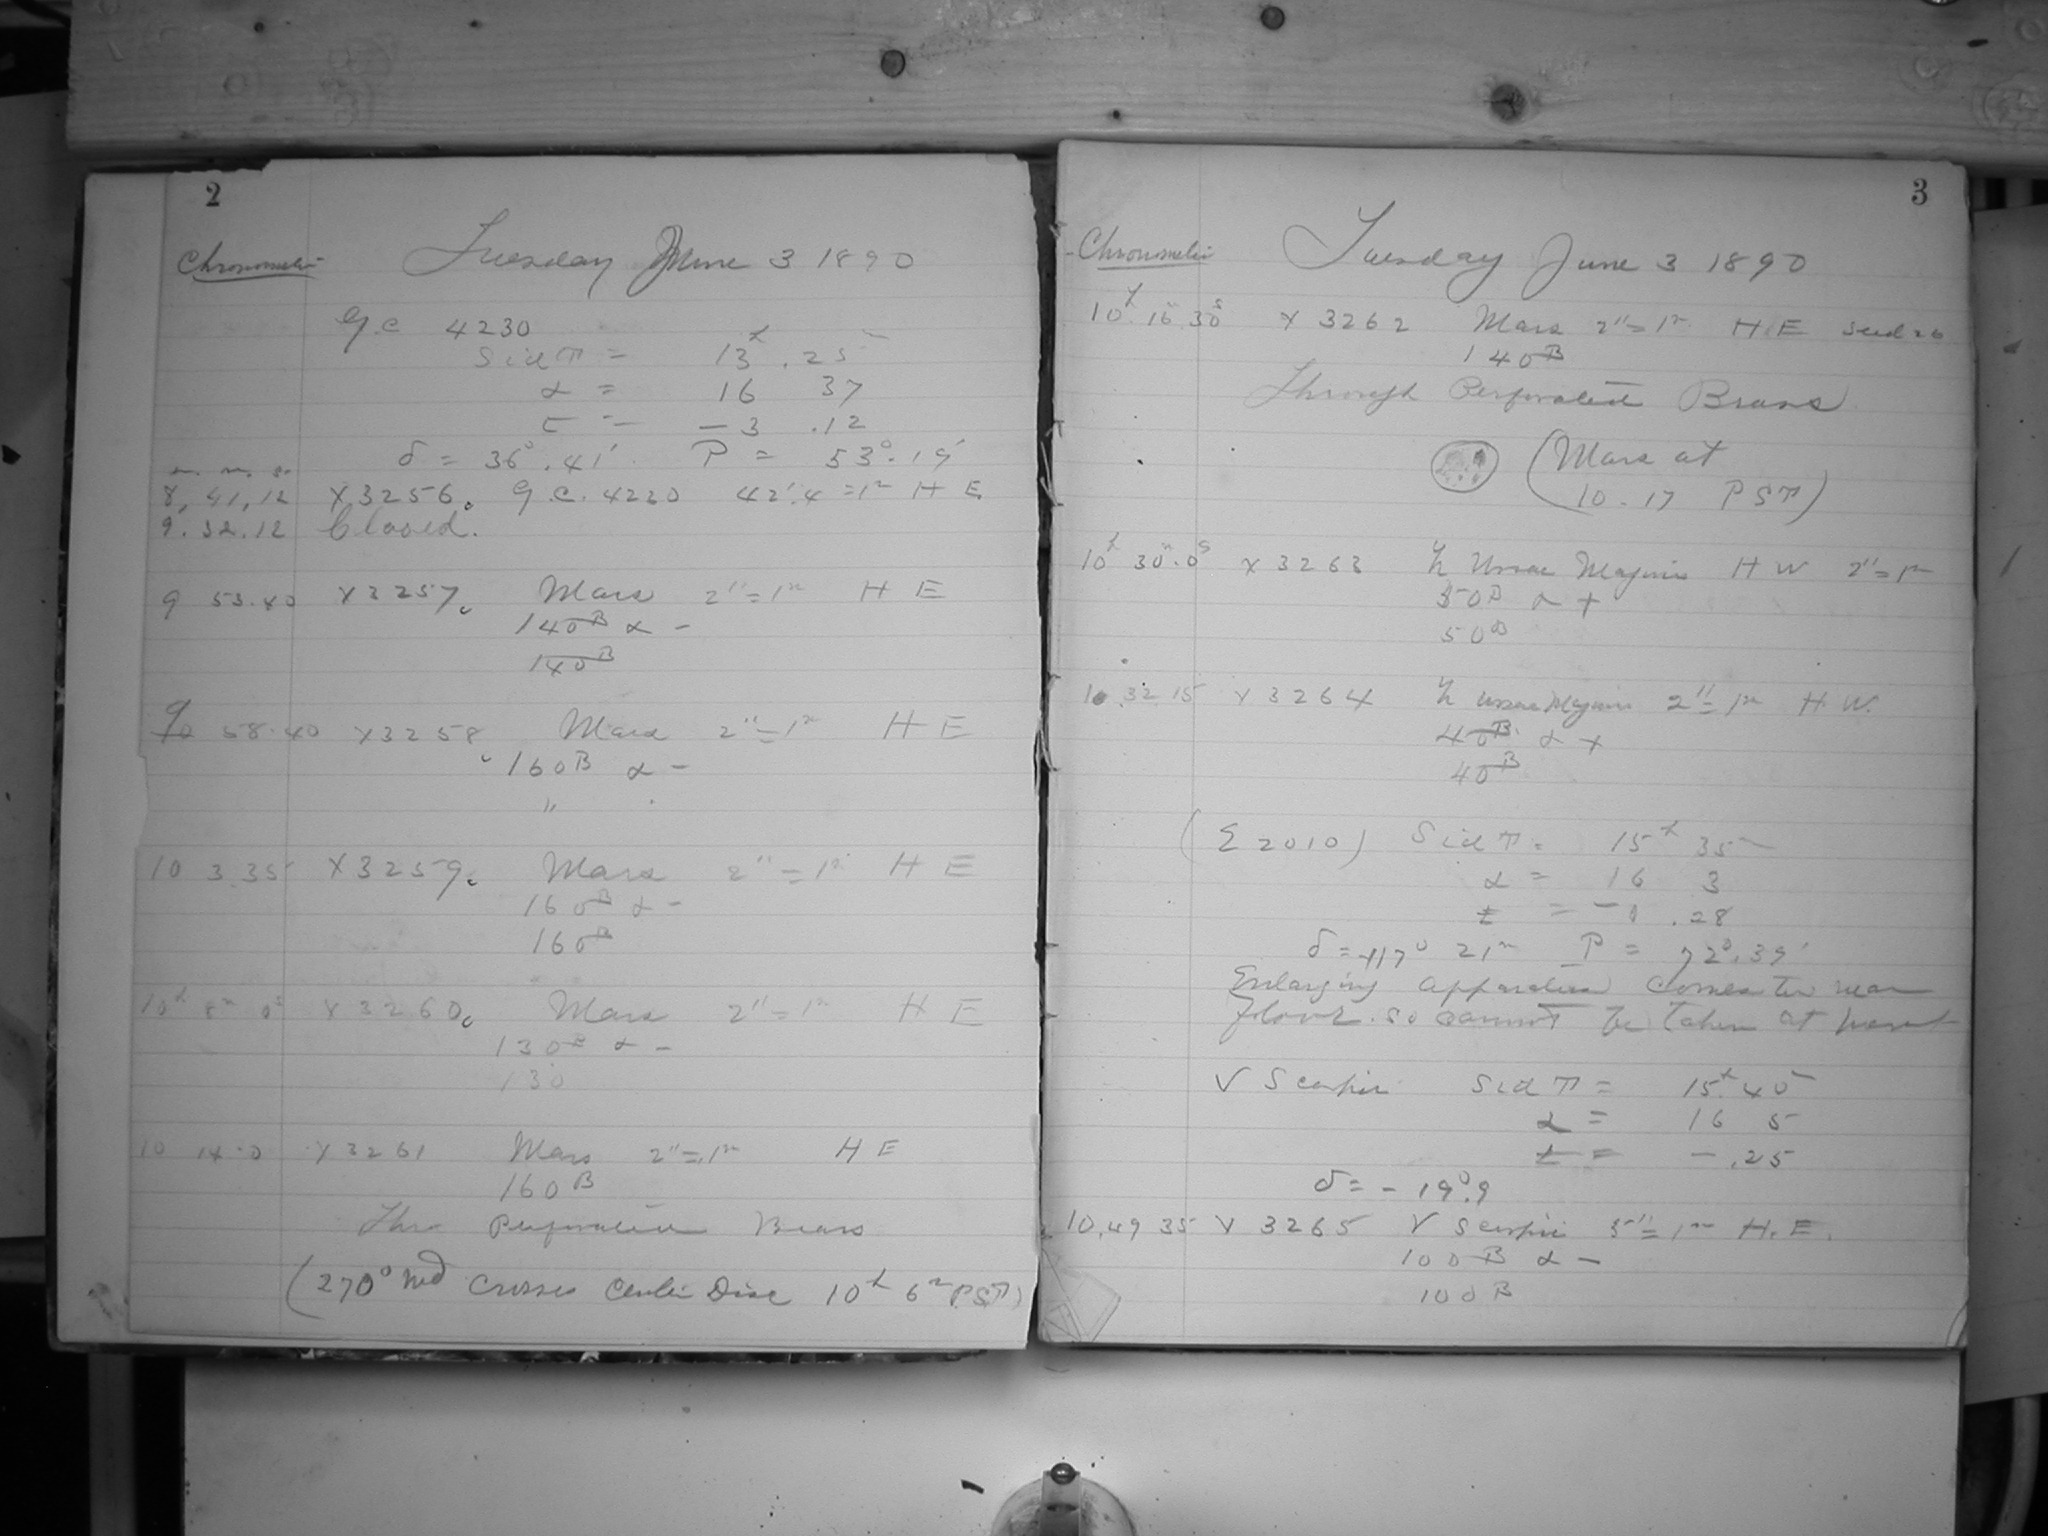 2
Chronometer Tuesday June 3 1890
G.C. 4230
Sid T = 13h.25
α = 16 37
t = -3 .12
δ = 36°.41' P = 53°.19'
h. m. s.
8, 41, 12 X3256. G.C. 4230 42".4 = 1m H E
9. 32. 12 Closed.
9 53.40 X3257. Mars 2" = 1m H E
140B α -
140B
9 58.40 X3258. Mars 2" = 1m H E
160B α -
"
10 3.35 X3259. Mars 2" = 1m H E
160B α -
160B
10h 8m 0s X3260. Mars 2" = 1m H E
130B α -
130
10 14.0 X3261 Mars 2" = 1m H E
160B
Thro Perforated Brass
(270° Md Crosses Center Disc 10h 6m P.S.T)
3
Chronometer Tuesday June 3 1890
10h 16 30s X 3262 Mars 2" = 1m H.E
140B
Through Perforated Brass
(Mars at
10.17 PST)
10h 30m.0s X 3263 h Ursae Majoris H W 2" = 1m
50B α +
50B
10.32 15 X 3264 h Ursae Majoris 2" = 1m H.W.
40B α +
40B
(Σ 2010) Sid T = 15h 35
α = 16 3
t = -0 .28
δ = +17° 21m P = 72°.39'
Enlarging apparatus comes too near
floor. so cannot be taken at present
ν Scorpii Sid T = 15h 40
α = 16 5
t = - .25
δ = - 19°.9
10,49 35 X 3265 ν Scorpii 5" = 1m H.E.
100B α -
100B